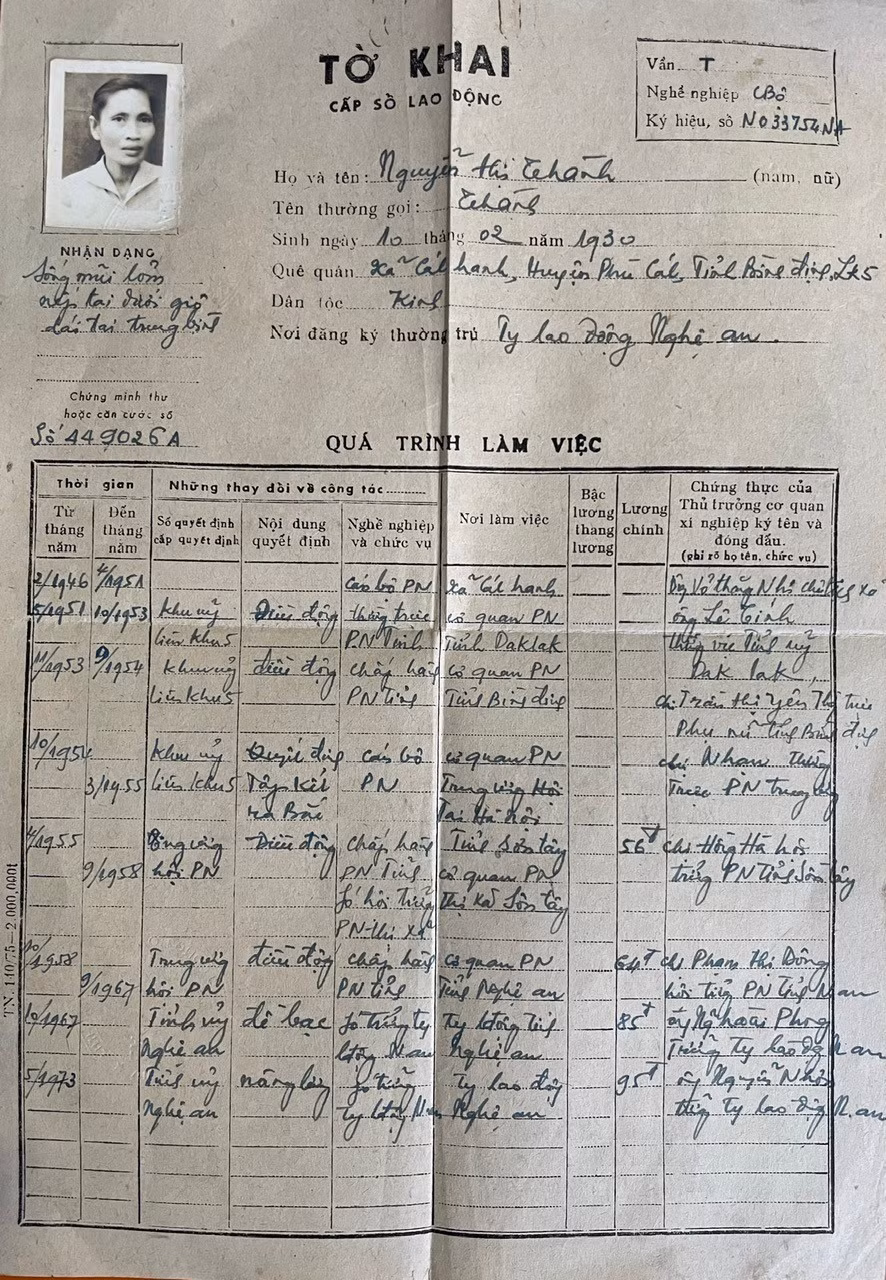 TỜ KHAI
CẤP SỔ LAO ĐỘNG
Vần T
Nghề nghiệp CBộ
Ký hiệu, số N033754NA
Họ và tên: Nguyễn thị Thành (nam, nữ)
Tên thường gọi: Thành
Sinh ngày 10 tháng 02 năm 1930
Quê quán Xã Cát hanh, Huyện Phù Cát, Tỉnh Bình định, LK5
Dân tộc Kinh
Nơi đăng ký thường trú Ty lao động Nghệ an.
NHẬN DẠNG
Sống mũi lõm
nếp tai dưới
dái tai trung bình
Chứng minh thư
hoặc căn cước số
Số 449026A
QUÁ TRÌNH LÀM VIỆC
Thời gian
Những thay đổi về công tác
Từ tháng năm
Đến tháng năm
Số quyết định cấp quyết định
Nội dung quyết định
Nghề nghiệp và chức vụ
Nơi làm việc
Bậc lương thang lương
Lương chính
Chứng thực của Thủ trưởng cơ quan xí nghiệp ký tên và đóng dấu.
(ghi rõ họ tên, chức vụ)
2/1946 4/1951 cán bộ PN Xã Cát hanh
5/1951 10/1953 Khu uỷ Điều động thường trực cơ quan PN ông Lê
liên Khu 5 PN Tỉnh Tỉnh Daklak thường vụ Tỉnh uỷ
11/1953 9/1954 Khu uỷ điều động chấp hành cơ quan PN Dak lak,
liên Khu 5 PN tỉnh Tỉnh Bình định chị Trần thị Yên
Phụ nữ tỉnh Bình định
10/1954 Khu uỷ Quyết định cán bộ cơ quan PN chị Nhàn thường
3/1955 liên Khu 5 Tập Kết PN Trung ương Hội trực PN trung ương
ra Bắc Tại Hà nội
4/1955 Điều động chấp hành Tỉnh Sơn tây 56đ chị Hồng Hà hội
9/1958 hội PN PN Tỉnh cơ quan PN trưởng PN tỉnh Sơn tây
fó hội trưởng Thị xã Sơn tây
PN thị xã
10/1958 Trung ương điều động chấp hành cơ quan PN 64đ chị Phạm thị Đông
9/1967 hội PN PN tỉnh Tỉnh Nghệ an hội trưởng PN tỉnh N.an
10/1967 Tỉnh uỷ đề bạt fó trưởng ty Ty lđộng tỉnh 85đ Phong
Nghệ an lđộng N.an Nghệ an Trưởng Ty lao động N.an
5/1973 Tỉnh uỷ nâng lương fó trưởng Ty lao động 95đ ông Nguyễn
Nghệ an ty lđộng N.an Nghệ an Ty lao động N.an
TN. 140/75-2.000.000t